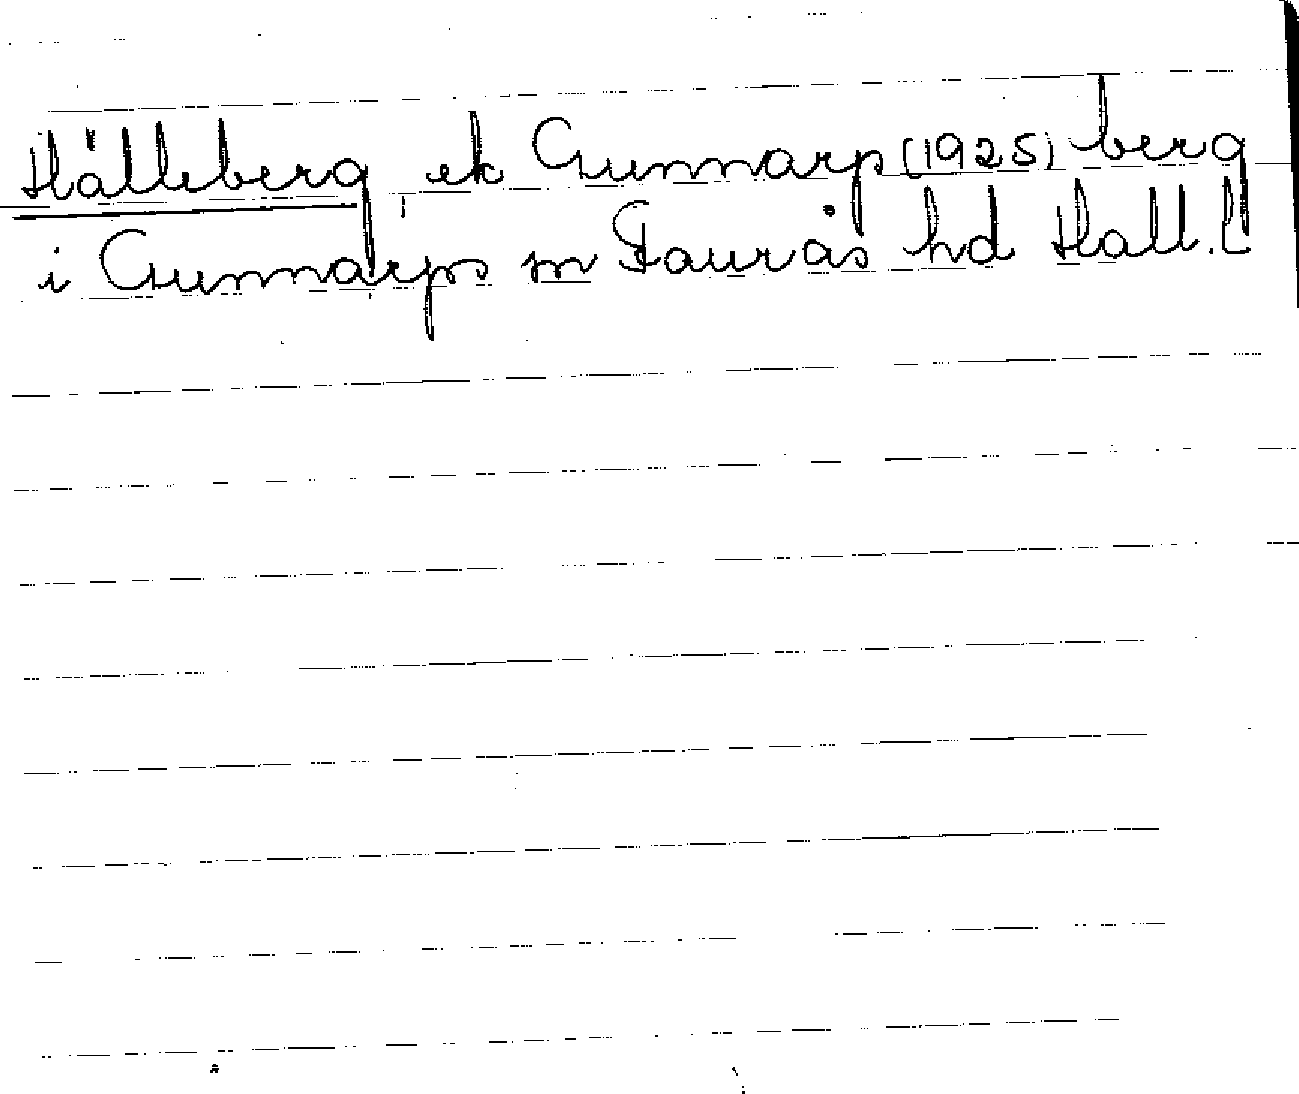 Hälleberg, ek Gunnarp (1925) berg
i Gunnarps sn Faurås hd Hall. L